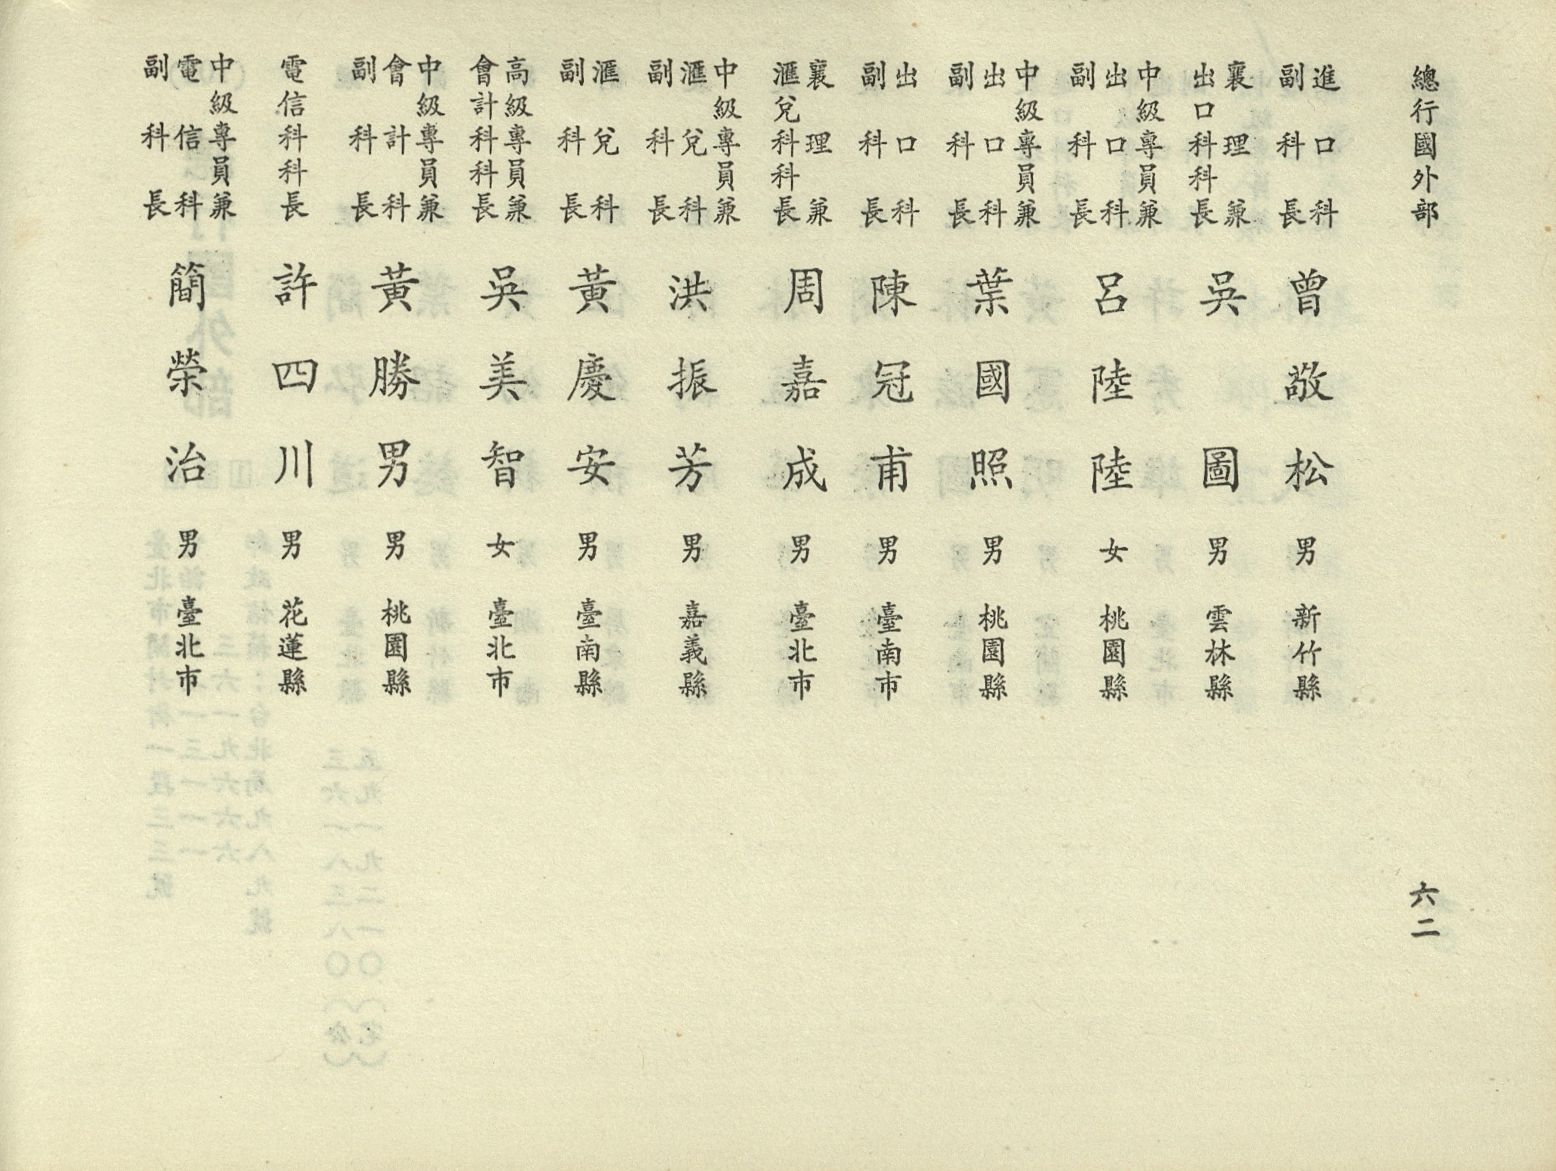 總行國外部
六二
進口科
副科長
曾敬松 男 新竹縣
襄理兼
出口科科長
吳圖 男 雲林縣
中級專員兼
出口科
副科長
呂陸陸 女 桃園縣
中級專員兼
出口科
副科長
葉國照 男 桃園縣
出口科
副科長
陳冠甫 男 臺南市
襄理兼
滙兌科科長
周嘉成 男 臺北市
中級專員兼
滙兌科
副科長
洪振芳 男 嘉義縣
滙兌科
副科長
黃慶安 男 臺南縣
高級專員兼
會計科科長
吳美智 女 臺北市
中級專員兼
會計科
副科長
黃勝男 男 桃園縣
電信科科長
許四川 男 花蓮縣
中級專員兼
電信科
副科長
簡榮治 男 臺北市